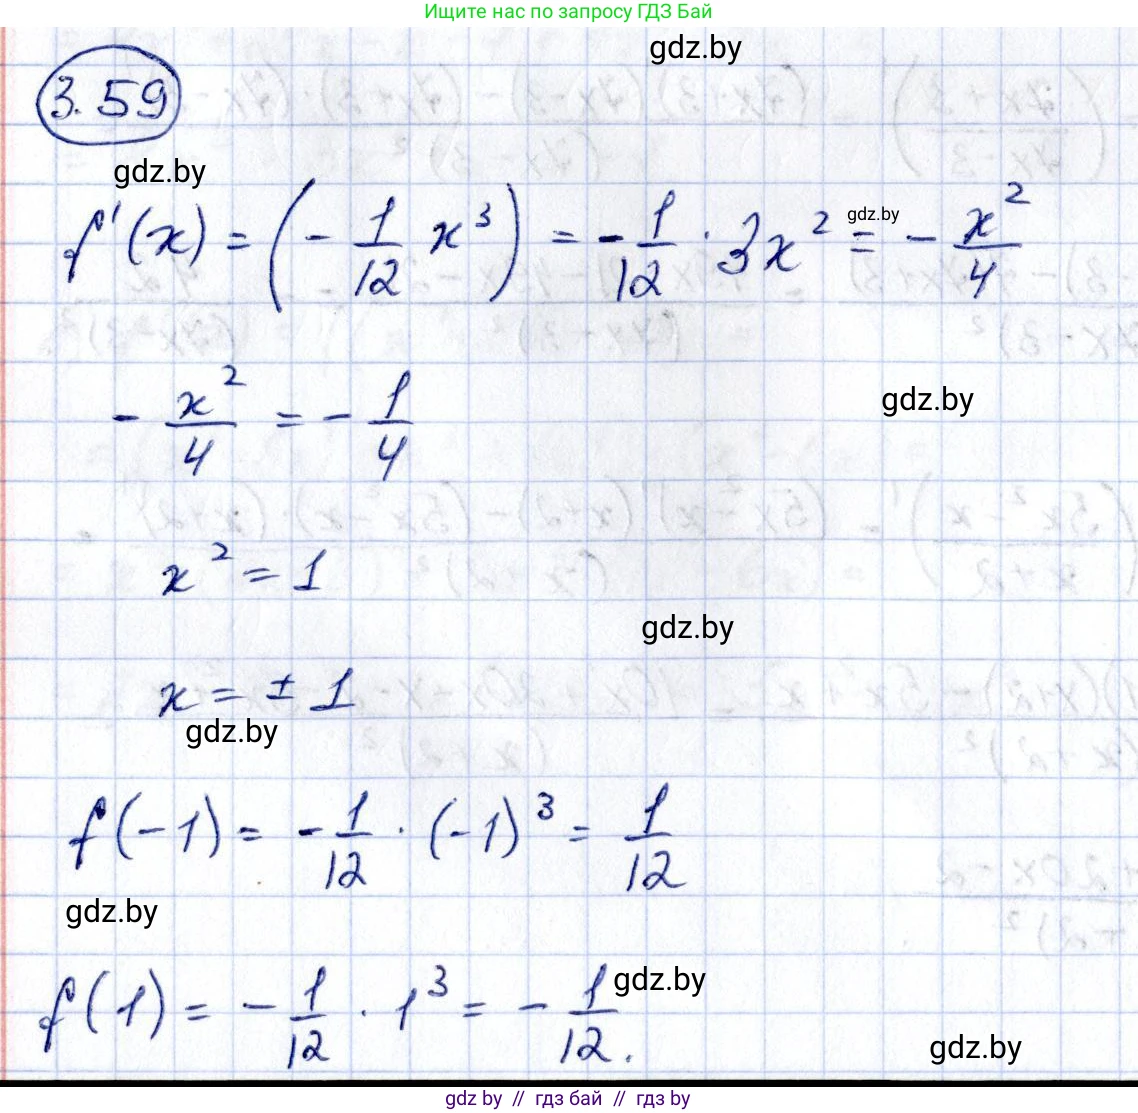 Ищите нас по запросу ГДЗ Бай
gdz.by
3.59
gdz.by
f'(x) = (- 1/12 x³) = - 1/12 · 3x² = - x²/4
gdz.by
- x²/4 = - 1/4
gdz.by
x² = 1
gdz.by
x = ± 1
gdz.by
f(-1) = - 1/12 · (-1)³ = 1/12
gdz.by
f(1) = - 1/12 · 1³ = - 1/12.
gdz.by
gdz.by
gdz by // гдз бай // гдз by